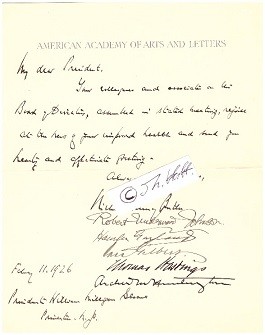 AMERICAN ACADEMY OF ARTS AND LETTERS
My dear President.
Your colleagues and associates on the
Board of Directors, assembled in stated meeting, rejoice
at the news of your improved health and send you
hearty and affectionate greeting.
Robert Underwood Johnson
Hamlin Garland
Thomas Hastings
Archer M. Huntington
Feby 11. 1926
President William Milligan Sloane
Princeton N.J.